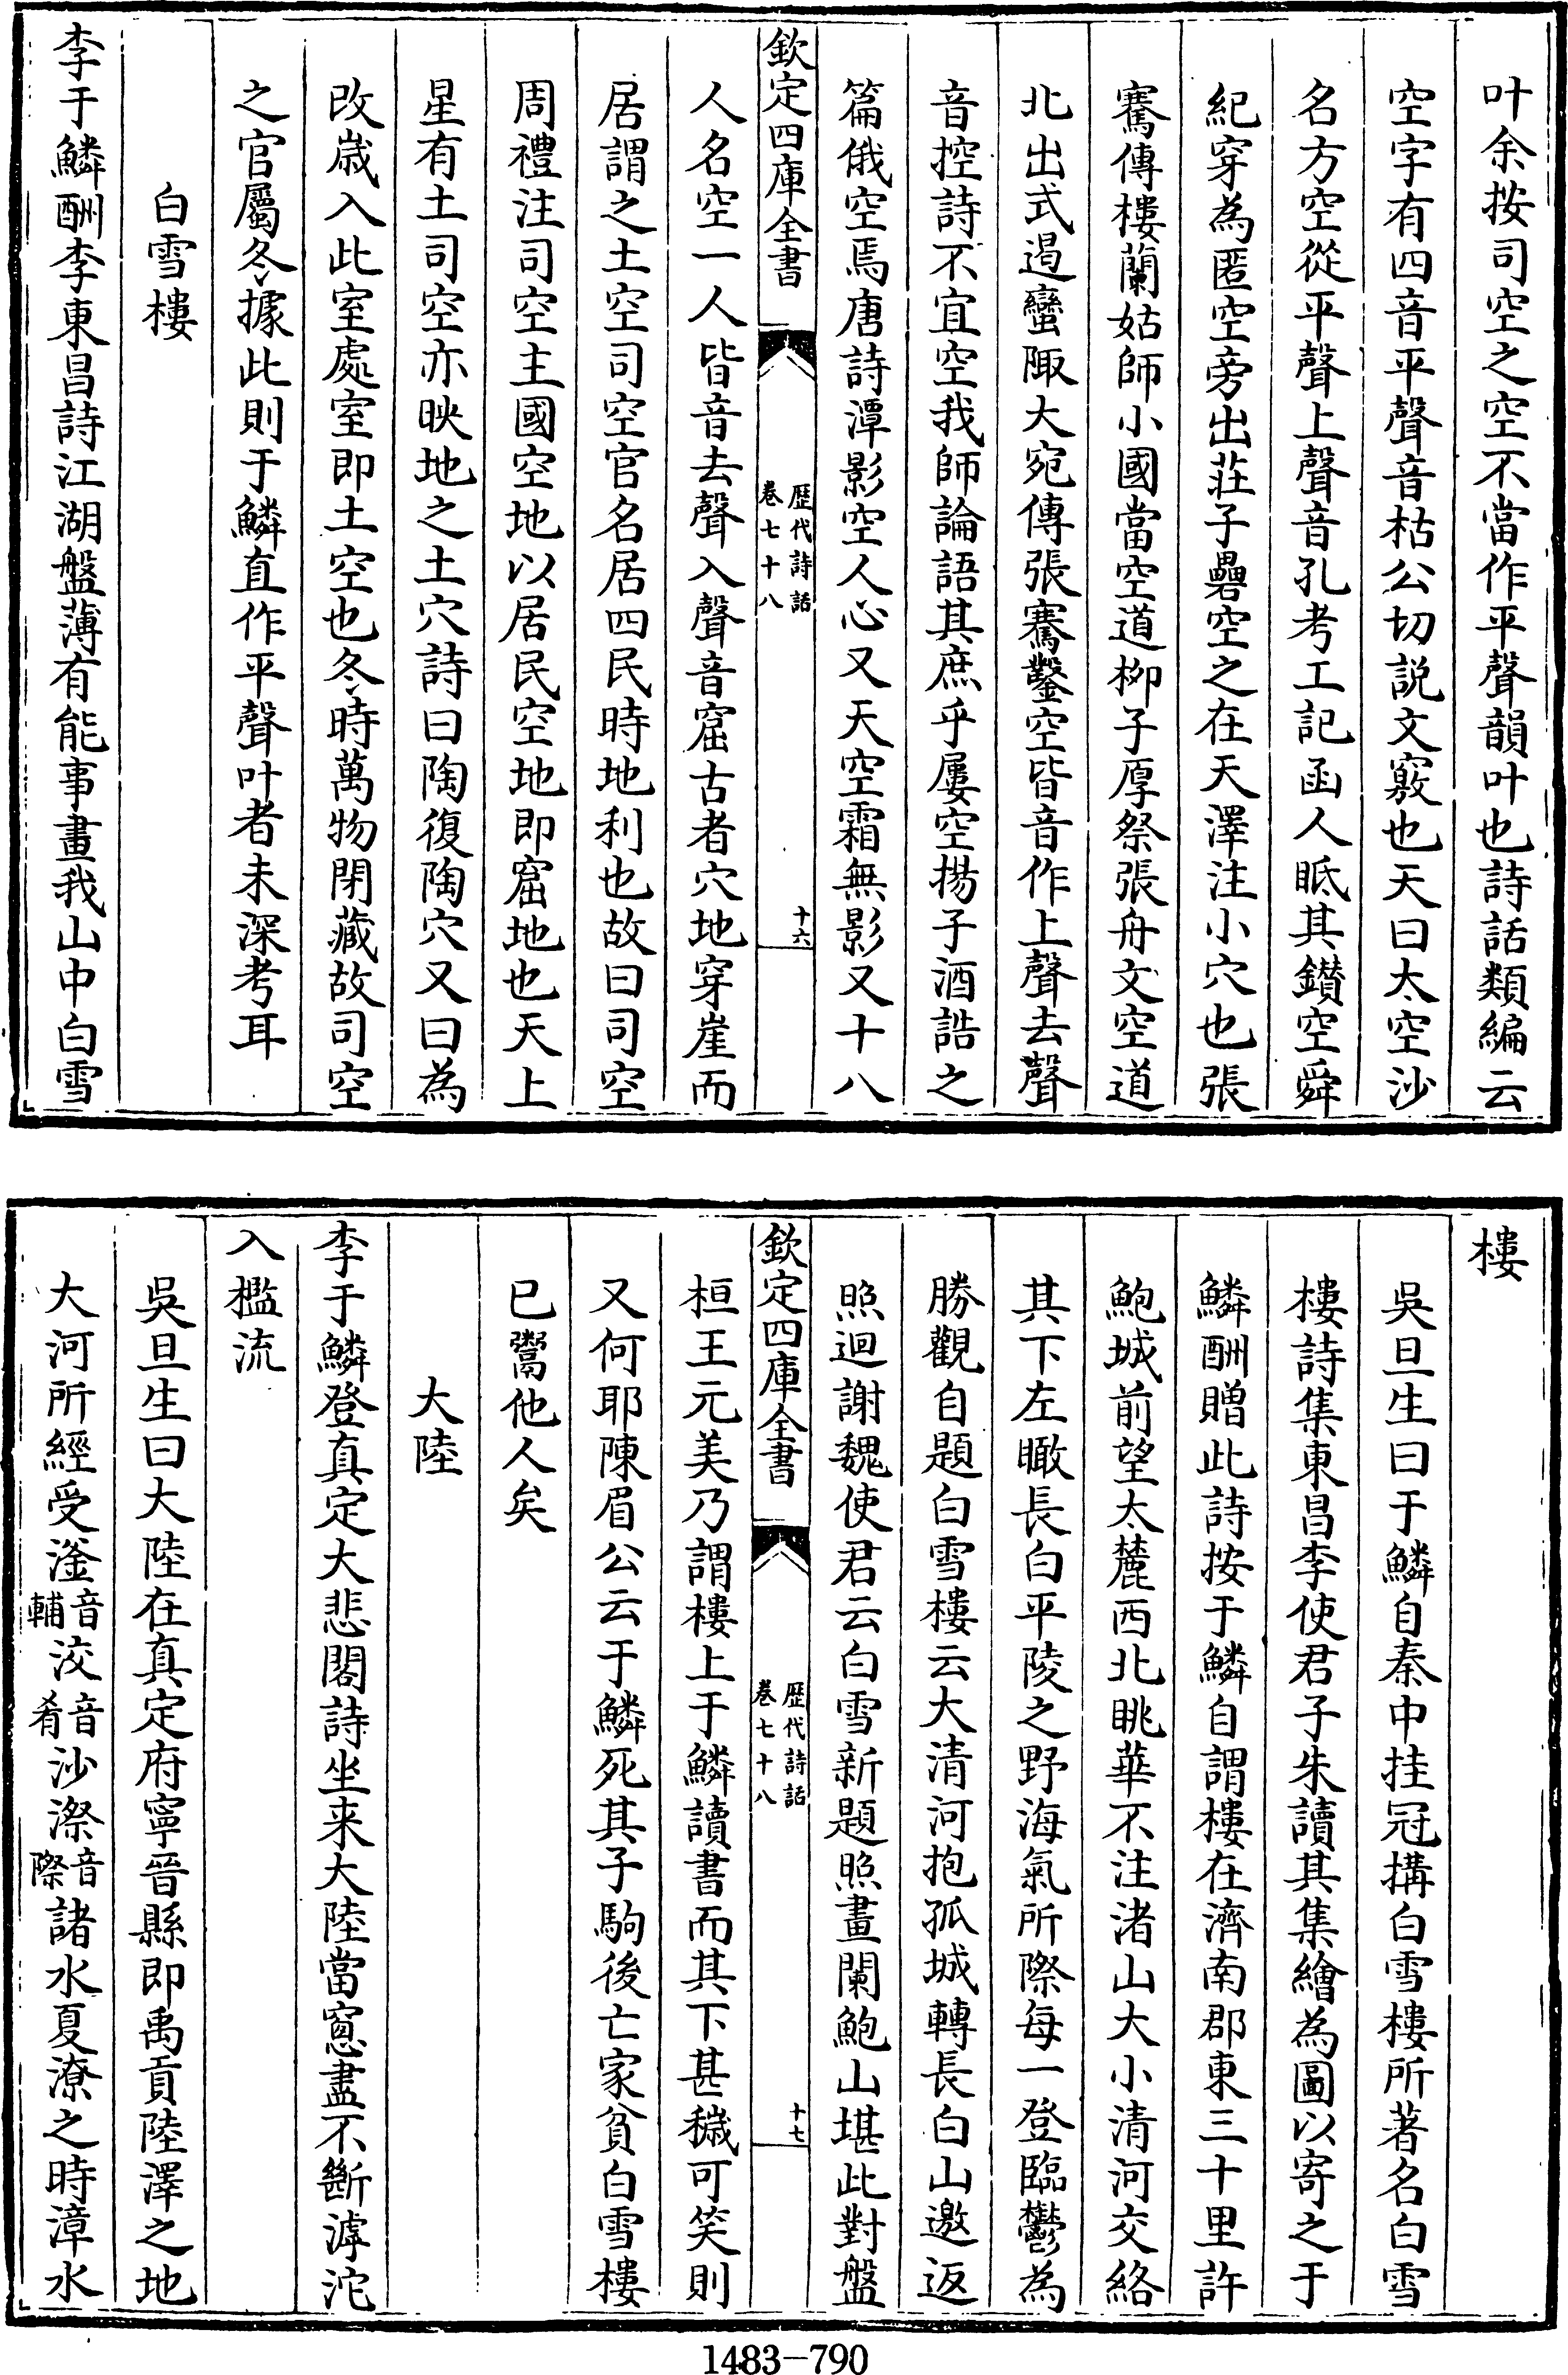 叶余按司空之空不當作平聲韻叶也詩話類編云
空字有四音平聲音枯公切説文竅也天曰太空沙
名方空從平聲上聲音孔考工記函人眡其鑚空舜
紀穿為匿空旁出莊子礨空之在天澤注小穴也張
騫傳樓蘭姑師小國當空道柳子厚祭張舟文空道
北出式遏蠻陬大宛傳張騫鑿空皆音作上聲去聲
音控詩不宜空我師論語其庶乎屢空揚子酒誥之
篇俄空焉唐詩潭影空人心又天空霜無影又十八
欽定四庫全書
歴代詩話
卷七十八
十六
人名空一人皆音去聲入聲音窟古者穴地穿崖而
居謂之土空司空官名居四民時地利也故曰司空
周禮注司空主國空地以居民空地即窟地也天上
星有土司空亦映地之土穴詩曰陶復陶穴又曰為
改歳入此室處室即土空也冬時萬物閉藏故司空
之官屬冬據此則于鱗直作平聲叶者未深考耳
白雪樓
李于鱗酬李東昌詩江湖盤薄有能事畫我山中白雪
樓
吳旦生曰于鱗自秦中挂冠搆白雪樓所著名白雪
樓詩集東昌李使君子朱讀其集繪為圖以寄之于
鱗酬贈此詩按于鱗自謂樓在濟南郡東三十里許
鮑城前望太麓西北眺華不注渚山大小清河交絡
其下左瞰長白平陵之野海氣所際每一登臨鬱為
勝觀自題白雪樓云大清河抱孤城轉長白山邀返
照迴謝魏使君云白雪新題照畫闌鮑山堪此對盤
欽定四庫全書
歴代詩話
卷七十八
十七
桓王元美乃謂樓上于鱗讀書而其下甚穢可笑則
又何耶陳眉公云于鱗死其子駒後亡家貧白雪樓
已鬻他人矣
大陸
李于鱗登真定大悲閣詩坐来大陸當窻盡不斷滹沱
入檻流
吳旦生曰大陸在真定府寧晉縣即禹貢陸澤之地
大河所經受滏音輔洨音肴沙漈音際諸水夏潦之時漳水
1483-790